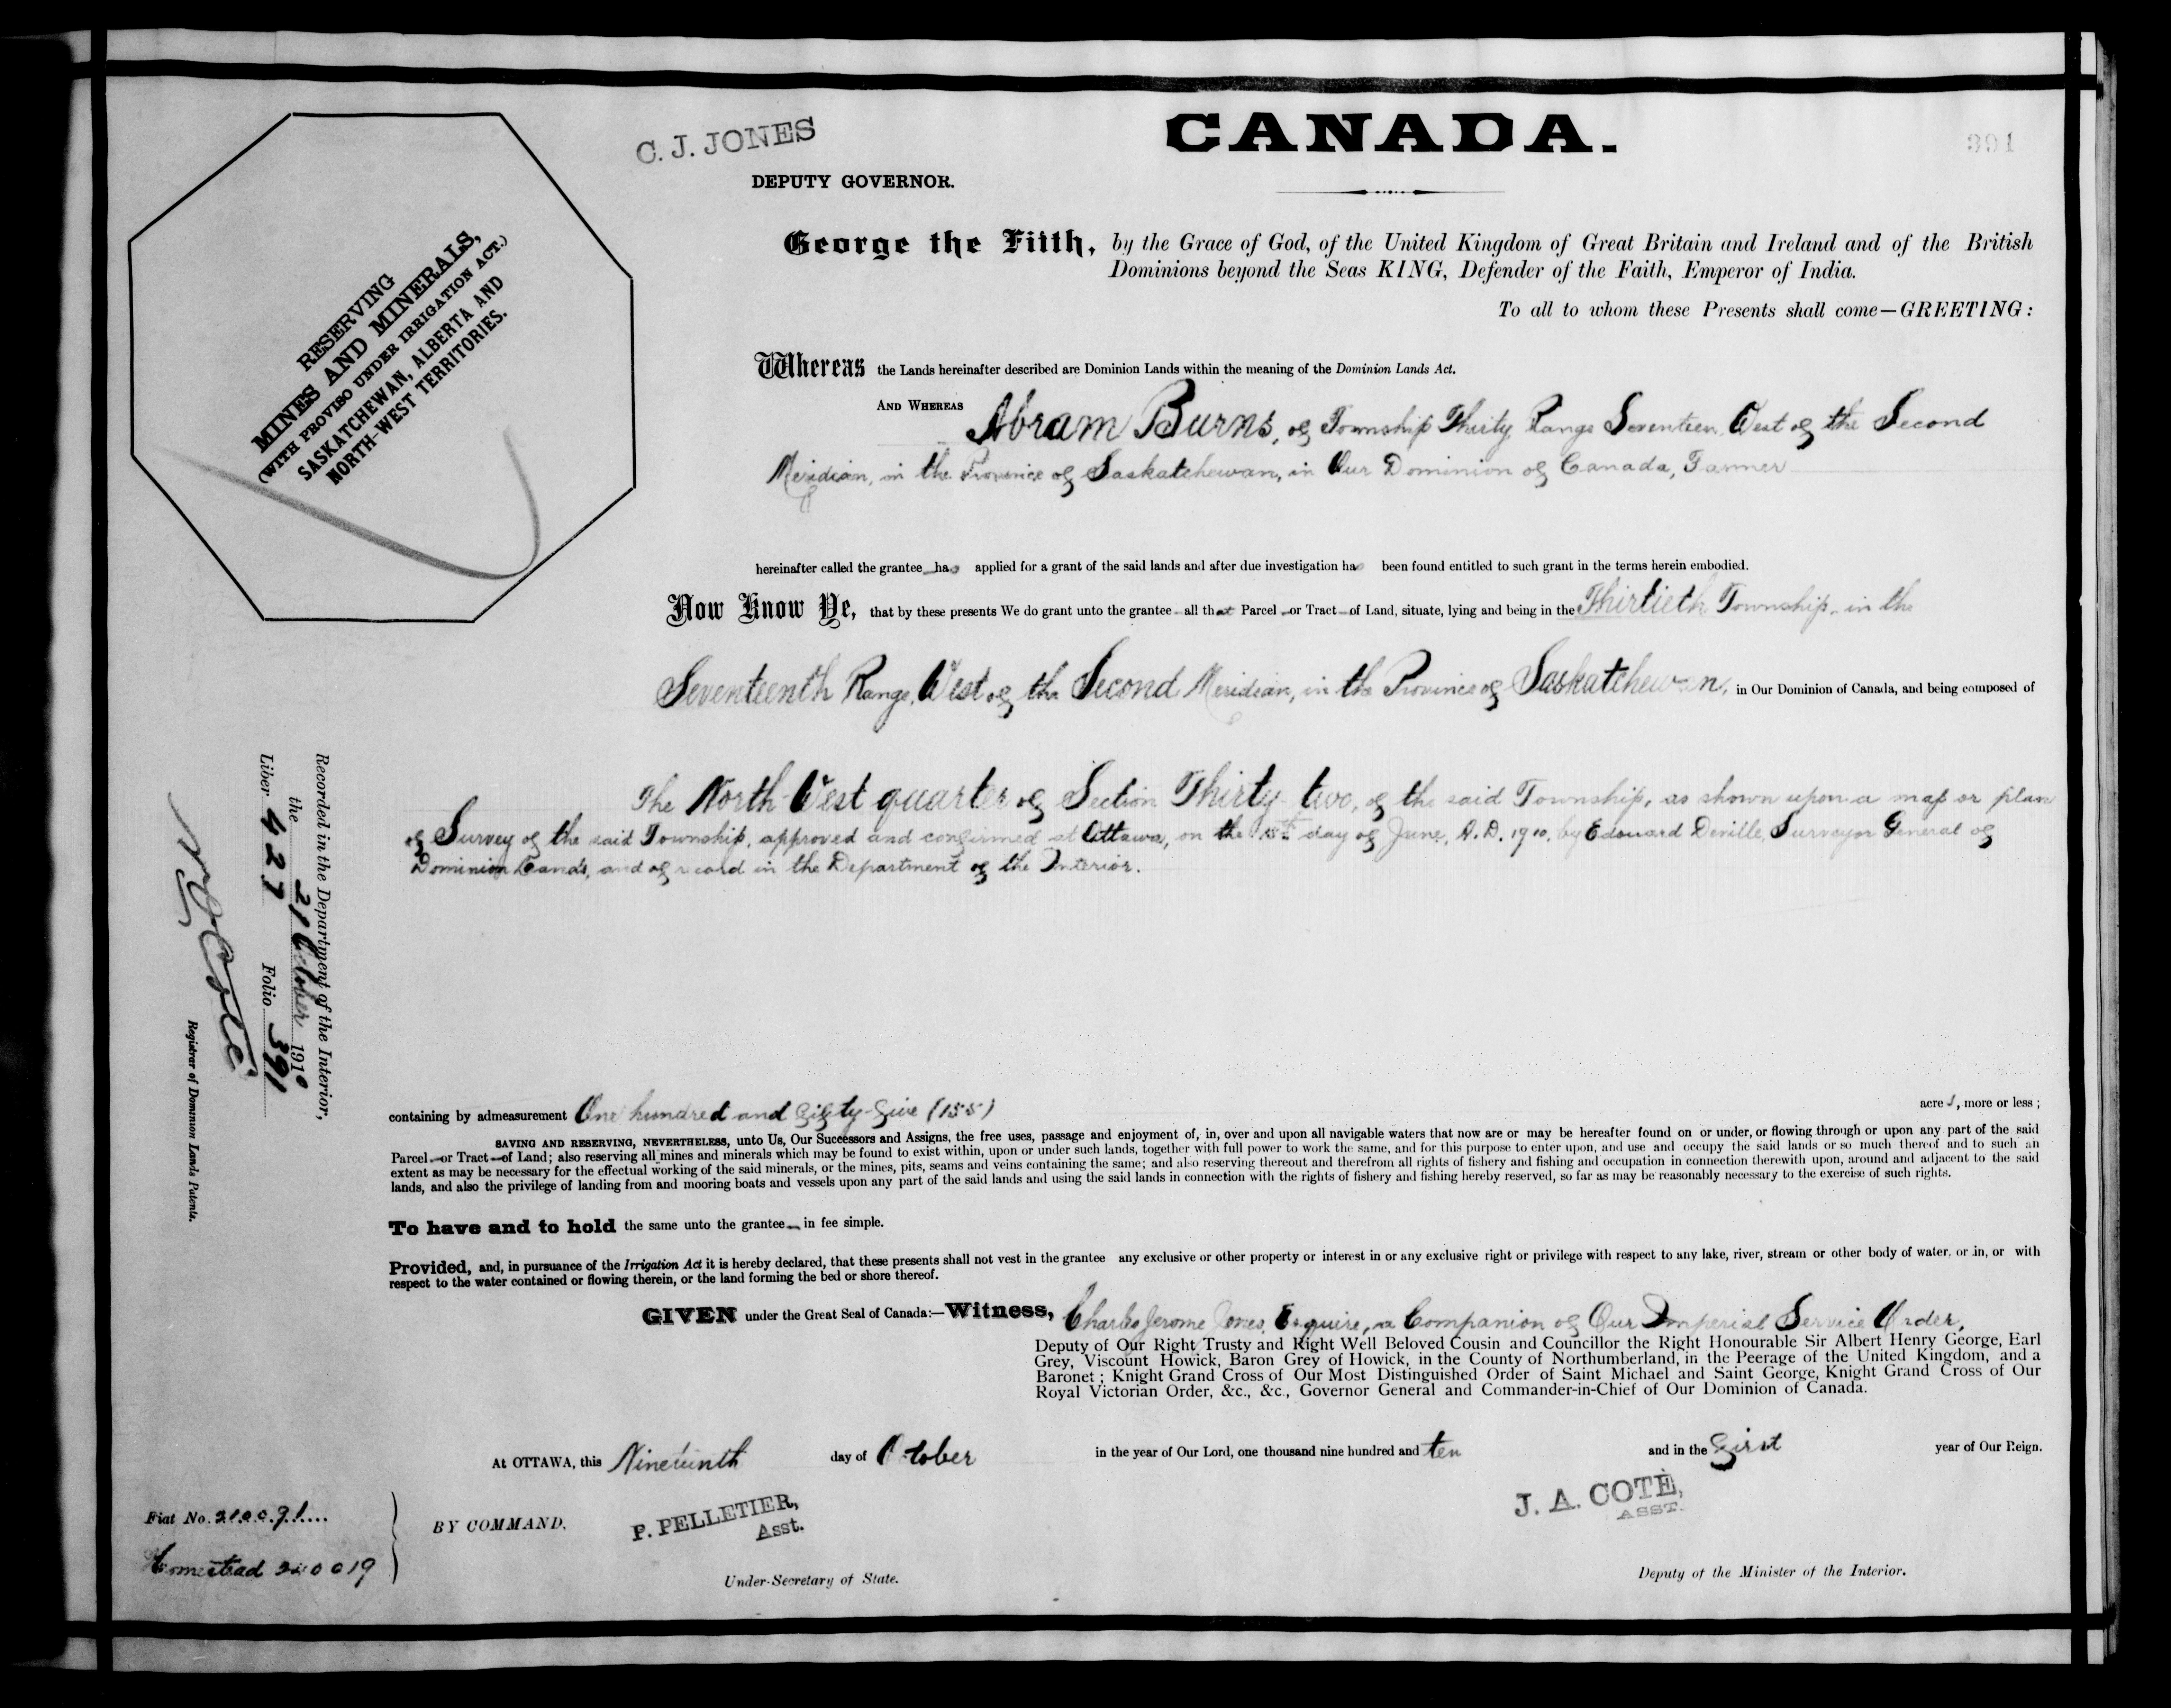 C. J. JONES
DEPUTY GOVERNOR.
CANADA.
391
RESERVING
MINES AND MINERALS,
(WITH PROVISO UNDER IRRIGATION ACT.)
SASKATCHEWAN, ALBERTA AND
NORTH-WEST TERRITORIES.
George the Fifth, by the Grace of God, of the United Kingdom of Great Britain and Ireland and of the British
Dominions beyond the Seas KING, Defender of the Faith, Emperor of India.
To all to whom these Presents shall come—GREETING:
Whereas the Lands hereinafter described are Dominion Lands within the meaning of the Dominion Lands Act.
AND WHEREAS Abram Burns, of Township Thirty Range Seventeen, West of the Second
Meridian, in the Province of Saskatchewan, in Our Dominion of Canada, Farmer
hereinafter called the grantee has applied for a grant of the said lands and after due investigation has been found entitled to such grant in the terms herein embodied.
Now Know Ye, that by these presents We do grant unto the grantee all that Parcel or Tract of Land, situate, lying and being in the Thirtieth Township, in the
Seventeenth Range, West of the Second Meridian, in the Province of Saskatchewan, in Our Dominion of Canada, and being composed of
The North West quarter of Section Thirty two, of the said Township, as shown upon a map or plan
of Survey of the said Township, approved and confirmed at Ottawa, on the 15th day of June, A.D. 1910, by Edouard Deville, Surveyor General of
Dominion Lands, and of record in the Department of the Interior.
Recorded in the Department of the Interior,
the 21 October 1910
Liber 427 Folio 391
Registrar of Dominion Lands Patents.
containing by admeasurement One hundred and fifty-five (155) acres, more or less;
SAVING AND RESERVING, NEVERTHELESS, unto Us, Our Successors and Assigns, the free uses, passage and enjoyment of, in, over and upon all navigable waters that now are or may be hereafter found on or under, or flowing through or upon any part of the said
Parcel or Tract of Land; also reserving all mines and minerals which may be found to exist within, upon or under such lands, together with full power to work the same, and for this purpose to enter upon, and use and occupy the said lands or so much thereof and to such an
extent as may be necessary for the effectual working of the said minerals, or the mines, pits, seams and veins containing the same; and also reserving thereout and therefrom all rights of fishery and fishing and occupation in connection therewith upon, around and adjacent to the said
lands, and also the privilege of landing from and mooring boats and vessels upon any part of the said lands and using the said lands in connection with the rights of fishery and fishing hereby reserved, so far as may be reasonably necessary to the exercise of such rights.
To have and to hold the same unto the grantee in fee simple.
Provided, and, in pursuance of the Irrigation Act it is hereby declared, that these presents shall not vest in the grantee any exclusive or other property or interest in or any exclusive right or privilege with respect to any lake, river, stream or other body of water, or in, or with
respect to the water contained or flowing therein, or the land forming the bed or shore thereof.
GIVEN under the Great Seal of Canada:—Witness, Charles Jerome Jones, Esquire, a Companion of Our Imperial Service Order,
Deputy of Our Right Trusty and Right Well Beloved Cousin and Councillor the Right Honourable Sir Albert Henry George, Earl
Grey, Viscount Howick, Baron Grey of Howick, in the County of Northumberland, in the Peerage of the United Kingdom, and a
Baronet; Knight Grand Cross of Our Most Distinguished Order of Saint Michael and Saint George, Knight Grand Cross of Our
Royal Victorian Order, &c., &c., Governor General and Commander-in-Chief of Our Dominion of Canada.
At OTTAWA, this Nineteenth day of October in the year of Our Lord, one thousand nine hundred and ten and in the First year of Our Reign.
Fiat No.
Homestead
BY COMMAND,
P. PELLETIER,
Asst.
Under-Secretary of State.
J. A. COTÉ,
ASST.
Deputy of the Minister of the Interior.